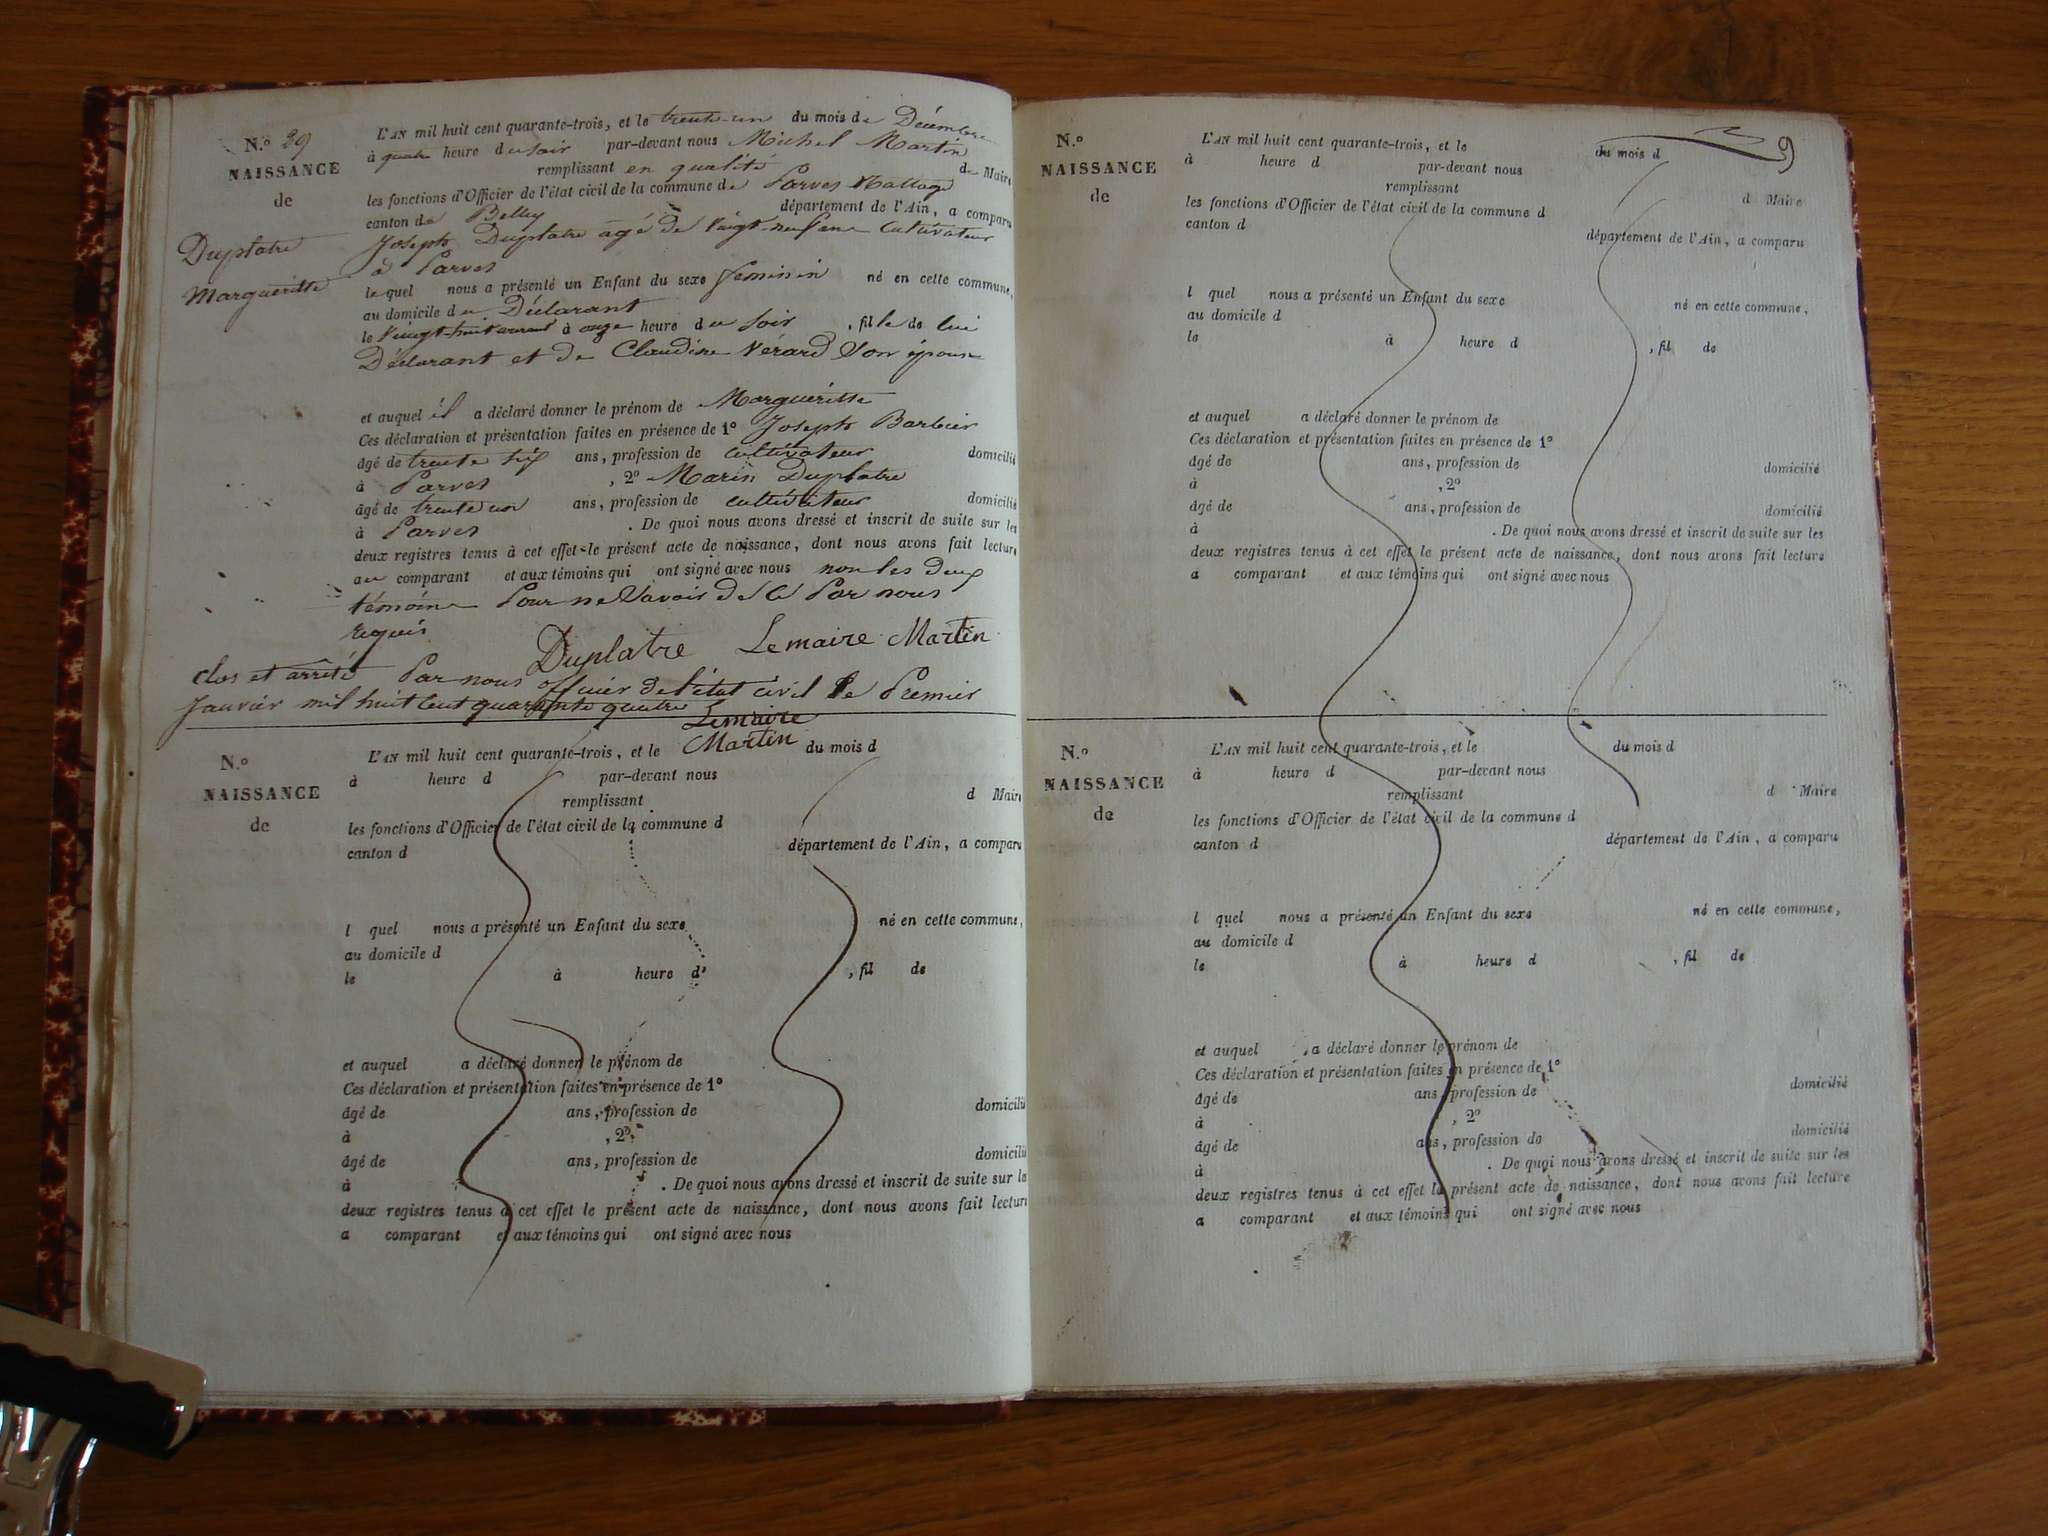 N.º 29
NAISSANCE
de
Duplatre
Margueritte
L'AN mil huit cent quarante-trois, et le trente-un du mois de Décembre
à quatre heure du soir par-devant nous Michel Martin
remplissant en qualité de Maire
les fonctions d'Officier de l'état civil de la commune de Parves
canton de Belley département de l'Ain, a comparu
Joseph Duplatre agé de vingt-neuf ans Cultivateur
à Parves
lequel nous a présenté un Enfant du sexe feminin né en cette commune,
au domicile du Déclarant
le vingt huit à onze heure du soir , fille de lui
Déclarant et de Claudine Vérard Son épouse
et auquel il a déclaré donner le prénom de Margueritte
Ces déclaration et présentation faites en présence de 1º Joseph Barbier
âgé de trente six ans, profession de cultivateur domicilié
à Parves , 2º Marin Duplatre
âgé de trente un ans, profession de cultivateur domicilié
à Parves . De quoi nous avons dressé et inscrit de suite sur les
deux registres tenus à cet effet le présent acte de naissance, dont nous avons fait lecture
au comparant et aux témoins qui ont signé avec nous non les deux
témoins Pour ne Savoir de ce Par nous
requis
Duplatre Lemaire Martin
Clos et arrêté Par nous officier de l'état civil le Premier
Janvier mil huit Cent quarante quatre
Lemaire
Martin
N.º
NAISSANCE
de
L'AN mil huit cent quarante-trois, et le du mois d
à heure d par-devant nous
remplissant d Maire
les fonctions d'Officier de l'état civil de la commune d
canton d département de l'Ain, a comparu
l quel nous a présenté un Enfant du sexe né en cette commune,
au domicile d
le à heure d , fil de
et auquel a déclaré donner le prénom de
Ces déclaration et présentation faites en présence de 1º
âgé de ans, profession de domicilié
à , 2º
âgé de ans, profession de domicilié
à . De quoi nous avons dressé et inscrit de suite sur les
deux registres tenus à cet effet le présent acte de naissance, dont nous avons fait lecture
a comparant et aux témoins qui ont signé avec nous
9
N.º
NAISSANCE
de
L'AN mil huit cent quarante-trois, et le du mois d
à heure d par-devant nous
remplissant d Maire
les fonctions d'Officier de l'état civil de la commune d
canton d département de l'Ain, a comparu
l quel nous a présenté un Enfant du sexe né en cette commune,
au domicile d
le à heure d , fil de
et auquel a déclaré donner le prénom de
Ces déclaration et présentation faites en présence de 1º
âgé de ans, profession de domicilié
à , 2º
âgé de ans, profession de domicilié
à . De quoi nous avons dressé et inscrit de suite sur les
deux registres tenus à cet effet le présent acte de naissance, dont nous avons fait lecture
a comparant et aux témoins qui ont signé avec nous
N.º
NAISSANCE
de
L'AN mil huit cent quarante-trois, et le du mois d
à heure d par-devant nous
remplissant d Maire
les fonctions d'Officier de l'état civil de la commune d
canton d département de l'Ain, a comparu
l quel nous a présenté un Enfant du sexe né en cette commune,
au domicile d
le à heure d , fil de
et auquel a déclaré donner le prénom de
Ces déclaration et présentation faites en présence de 1º
âgé de ans, profession de domicilié
à , 2º
âgé de ans, profession de domicilié
à . De quoi nous avons dressé et inscrit de suite sur les
deux registres tenus à cet effet le présent acte de naissance, dont nous avons fait lecture
a comparant et aux témoins qui ont signé avec nous